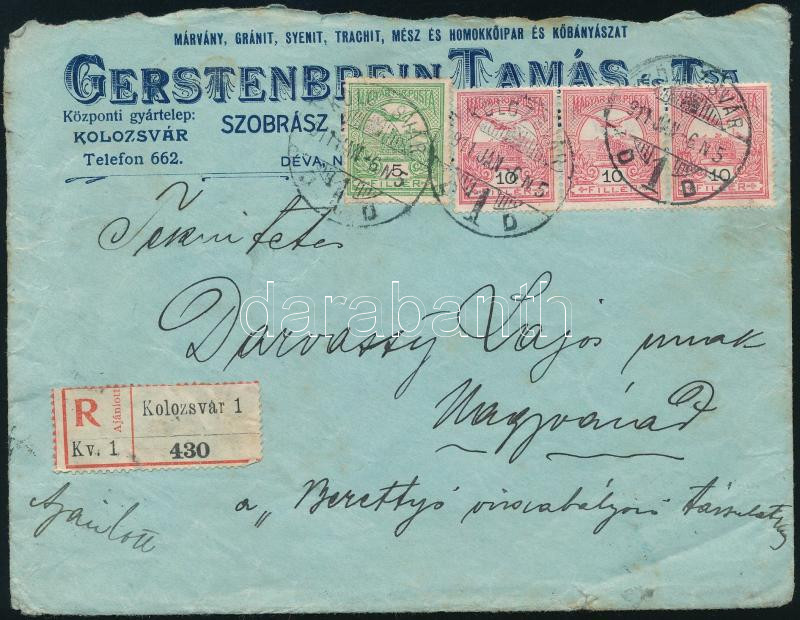 MÁRVÁNY, GRÁNIT, SYENIT, TRACHIT, MÉSZ ÉS HOMOKKŐIPAR ÉS KŐBÁNYÁSZAT
GERSTENBREIN TAMÁS ÉS TSA
Központi gyártelep:
KOLOZSVÁR
Telefon 662.
SZOBRÁSZ
DÉVA, N
MAGYAR KIR. POSTA
5
FILLÉR
10
FILLÉR
10
FILLÉR
10
FILLÉR
KOLOZSVÁR
911 JAN. 6 N. 5
1 D
Tekintetes
Darvassy Lajos urnak
Nagyvárad
a „Berettyó vizszabályozó társulat
Ajánlott
R Ajánlott Kolozsvár 1
Kv. 1 430
darabanth